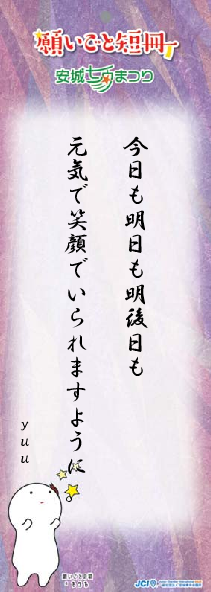 願いごと短冊
安城七夕まつり
今日も明日も明後日も
元気で笑顔でいられますように。
yuu
JCI